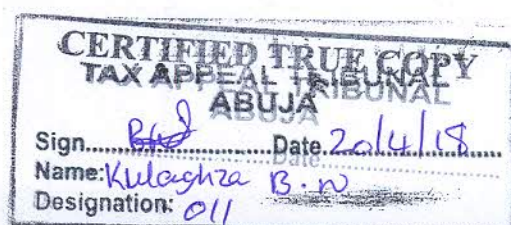 CERTIFIED TRUE COPY
TAX APPEAL TRIBUNAL
ABUJA
Sign.......... Date 20/4/18
Name: B. N
Designation: 011